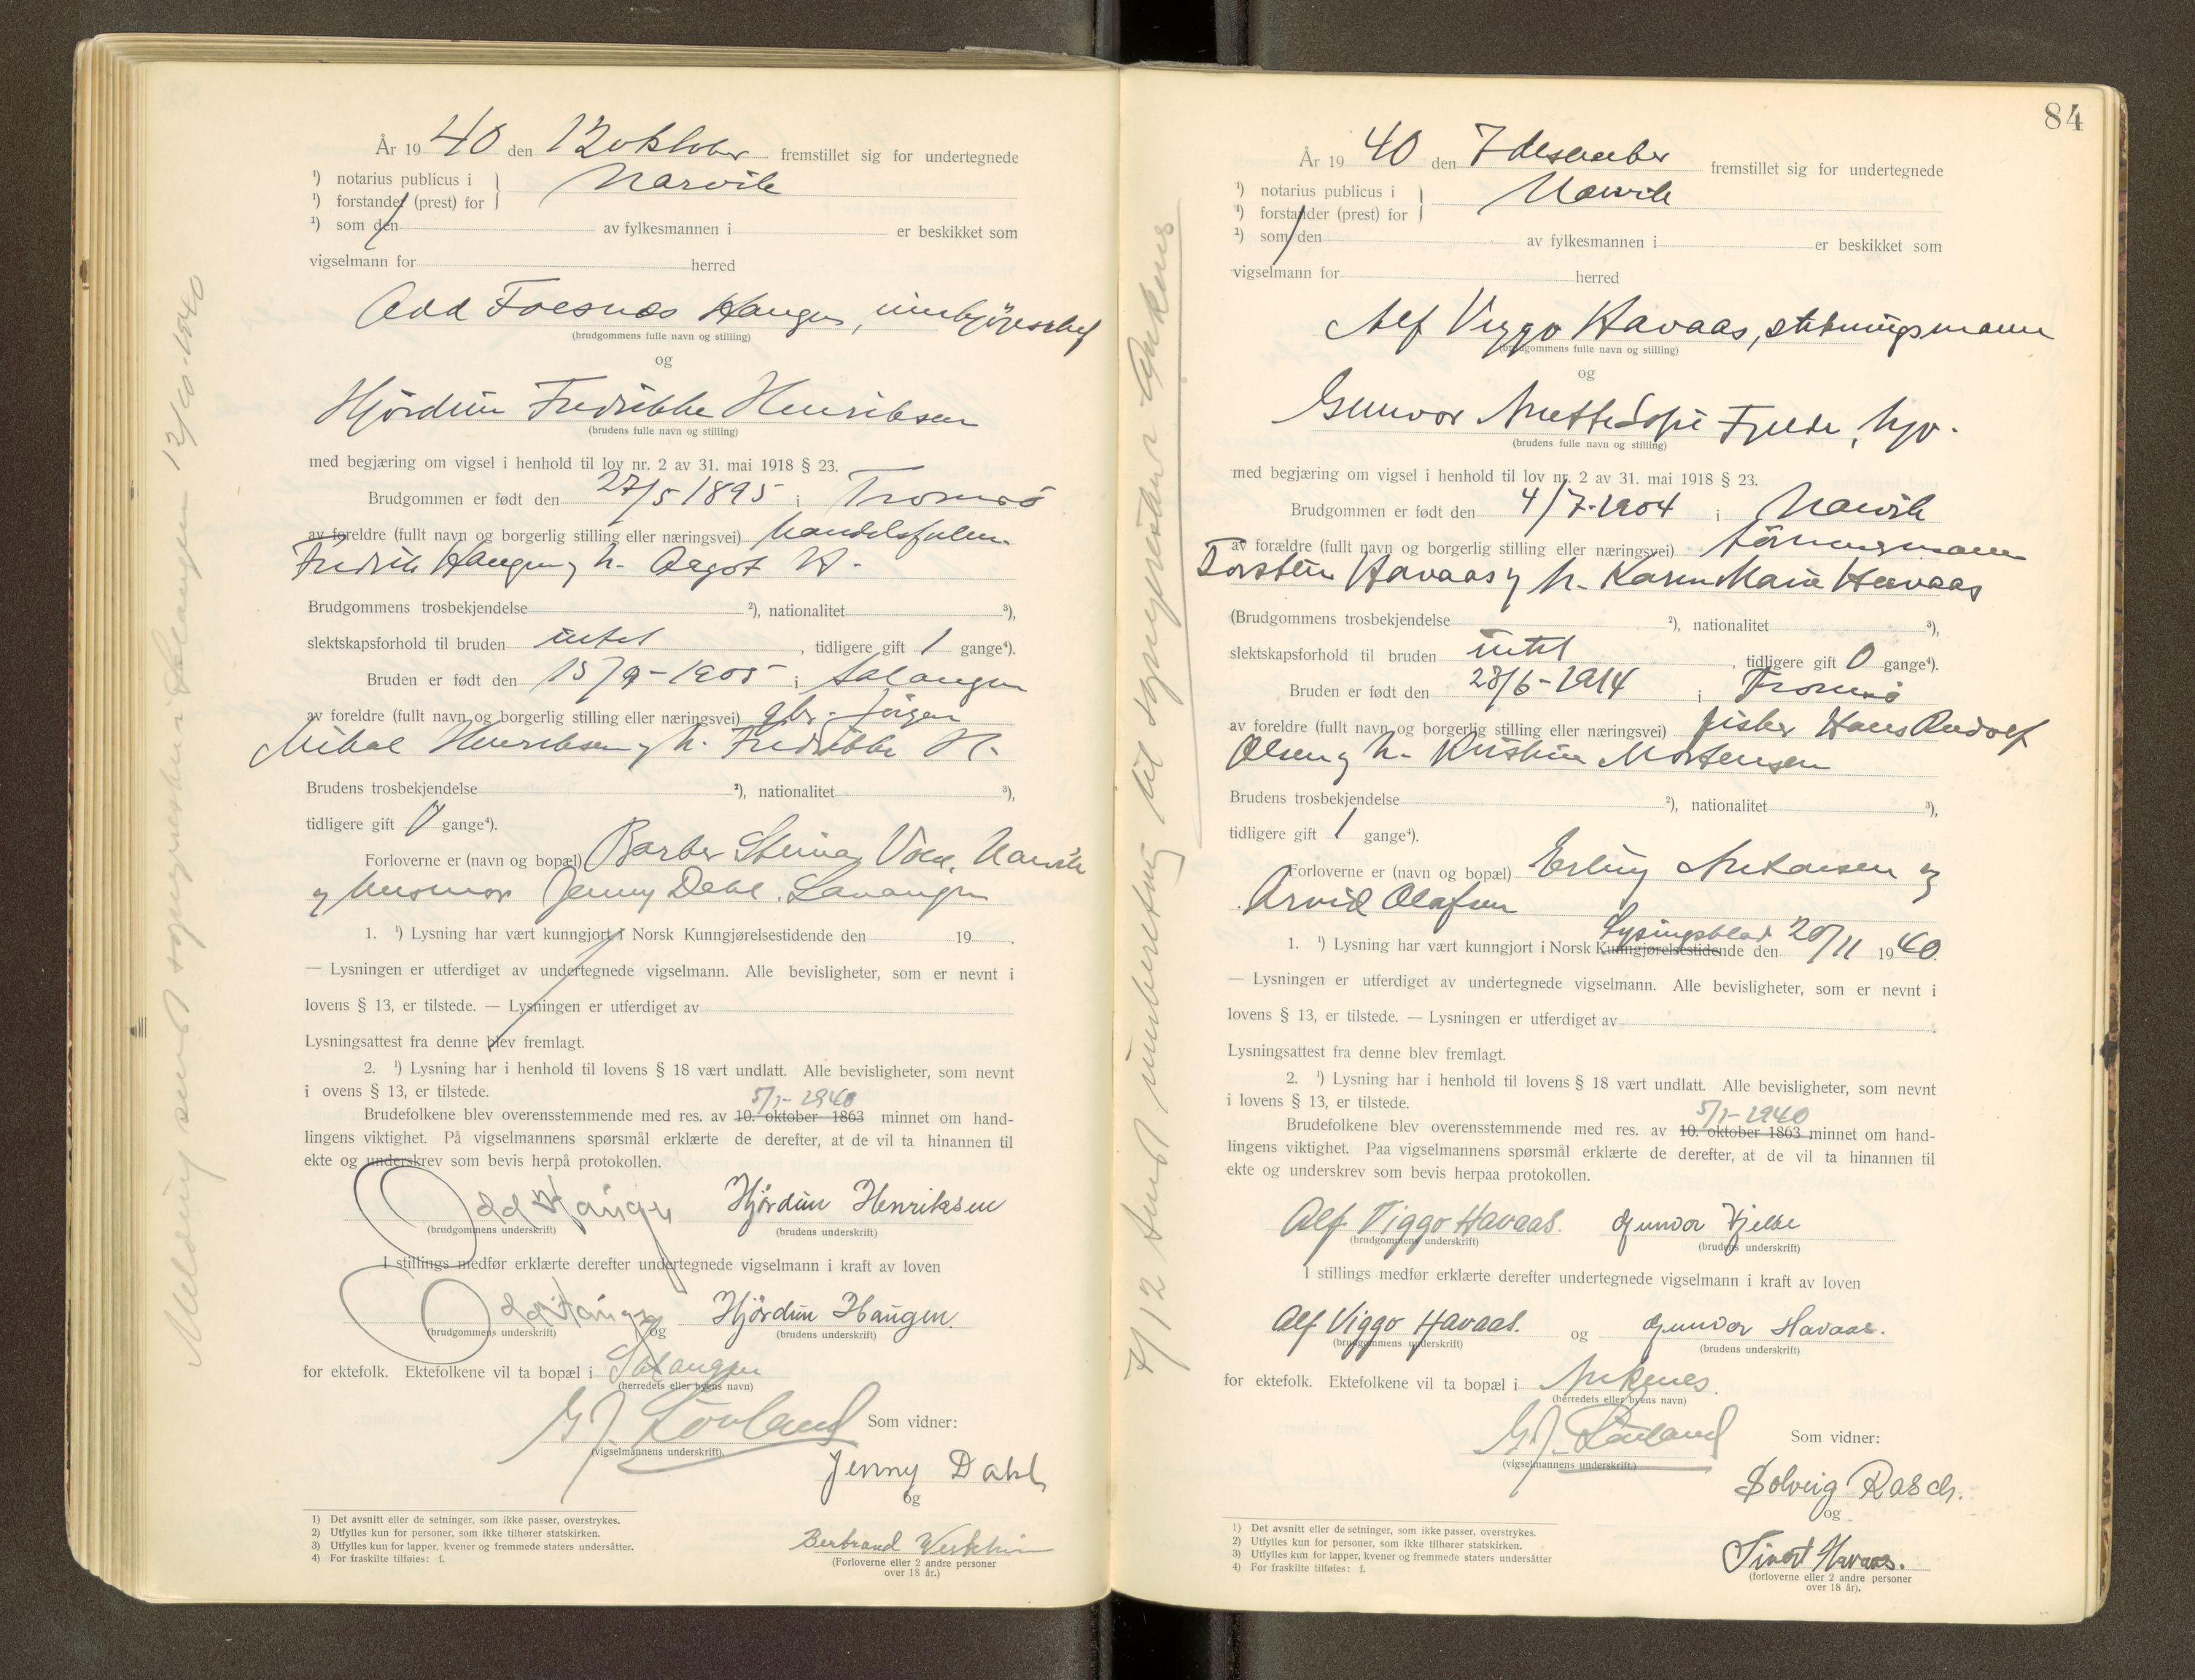 År 1940 den 12 oktober fremstillet sig for undertegnede
¹) notarius publicus i } Narvik
¹) forstander (prest) for
¹) som den av fylkesmannen i er beskikket som
vigselmann for herred
Odd Foesnæs Haugen,
(brudgommens fulle navn og stilling)
og
Hjördun Fredrikke Henriksen
(brudens fulle navn og stilling)
med begjæring om vigsel i henhold til lov nr. 2 av 31. mai 1918 § 23.
Brudgommen er født den 27/5 1895 i Tromsö
av foreldre (fullt navn og borgerlig stilling eller næringsvei) handelsfullm.
Fredrik Haugen og h. Aagot H.
Brudgommens trosbekjendelse ²), nationalitet ³),
slektskapsforhold til bruden intet, tidligere gift 1 gange⁴).
Bruden er født den 15/9-1905 i Salangen
av foreldre (fullt navn og borgerlig stilling eller næringsvei) gbr. Jörgen
Mikal Henriksen og h. Fredrikke H.
Brudens trosbekjendelse ²), nationalitet ³),
tidligere gift 0 gange⁴).
Forloverne er (navn og bopæl) Barber Steinar Narvik
og husmor Jenny Dahl. Lavangen
1. ¹) Lysning har vært kunngjort i Norsk Kunngjørelsestidende den 19 .
— Lysningen er utferdiget av undertegnede vigselmann. Alle bevisligheter, som er nevnt i
lovens § 13, er tilstede. — Lysningen er utferdiget av
Lysningsattest fra denne blev fremlagt.
2. ¹) Lysning har i henhold til lovens § 18 vært undlatt. Alle bevisligheter, som nevnt
i ovens § 13, er tilstede.
5/1-1940
Brudefolkene blev overensstemmende med res. av 10. oktober 1863 minnet om hand-
lingens viktighet. På vigselmannens spørsmål erklærte de derefter, at de vil ta hinannen til
ekte og underskrev som bevis herpå protokollen.
Odd Haugen Hjördun Henriksen
(brudgommens underskrift) (brudens underskrift)
I stillings medfør erklærte derefter undertegnede vigselmann i kraft av loven
Odd Haugen og Hjördun Haugen.
(brudgommens underskrift) (brudens underskrift)
for ektefolk. Ektefolkene vil ta bopæl i Salangen
(herredets eller byens navn)
G J. Lövland Som vidner:
(vigselmannens underskrift).
Jenny Dahl
og
Bertrand
(Forloverne eller 2 andre personer
over 18 år.)
1) Det avsnitt eller de setninger, som ikke passer, overstrykes.
2) Utfylles kun for personer, som ikke tilhører statskirken.
3) Utfylles kun for lapper, kvener og fremmede staters undersåtter.
4) For fraskilte tilføies: f.
Melding sendt sogneprestene i Salangen 12/10-1940
84
År 1940 den 7 desember fremstillet sig for undertegnede
¹) notarius publicus i } Narvik
¹) forstander (prest) for
¹) som den av fylkesmannen i er beskikket som
vigselmann for herred
Alf Viggo Havaas, stebningsmann
(brudgommens fulle navn og stilling)
og
Gunvor Anette Sofie Fjelde, hjv.
(brudens fulle navn og stilling)
med begjæring om vigsel i henhold til lov nr. 2 av 31. mai 1918 § 23.
Brudgommen er født den 4/7-1904 i Narvik
av forældre (fullt navn og borgerlig stilling eller næringsvei)
Torstein Havaas og h. Karen Marie Havaas
(Brudgommens trosbekjendelse ²), nationalitet ³),
slektskapsforhold til bruden intet, tidligere gift 0 gange⁴).
Bruden er født den 28/6-1914 i Tromsö
av foreldre (fullt navn og borgerlig stilling eller næringsvei) fisker Hans Rudolf
Olsen og h. Kristine Mortensen
Brudens trosbekjendelse ²), nationalitet ³),
tidligere gift 1 gange⁴).
Forloverne er (navn og bopæl) Erling og
Arvid Olafsen
Lysingsblad
1. ¹) Lysning har vært kunngjort i Norsk Kunngjørelsestidende den 20/11 1940.
— Lysningen er utferdiget av undertegnede vigselmann. Alle bevisligheter, som er nevnt i
lovens § 13, er tilstede. — Lysningen er utferdiget av
Lysningsattest fra denne blev fremlagt.
2. ¹) Lysning har i henhold til lovens § 18 vært undlatt. Alle bevisligheter, som nevnt
i lovens § 13, er tilstede.
5/1-1940
Brudefolkene blev overensstemmende med res. av 10. oktober 1863 minnet om hand-
lingens viktighet. Paa vigselmannens spørsmål erklærte de derefter, at de vil ta hinannen til
ekte og underskrev som bevis herpaa protokollen.
Alf Viggo Havaas. Gunvor Fjelde
(brudgommens underskrift) (brudens underskrift)
I stillings medfør erklærte derefter undertegnede vigselmann i kraft av loven
Alf Viggo Havaas. og Gunvor Havaas.
(brudgommens underskrift) (brudens underskrift)
for ektefolk. Ektefolkene vil ta bopæl i Ankenes.
(herredets eller byens navn)
G J. Lövland Som vidner:
(vigselmannens underskrift.)
Solveig Rasch.
og
Sivert Havaas.
(forloverne eller 2 andre personer
over 18 år).
1) Det avsnitt eller de setninger, som ikke passer, overstrykes.
2) Utfylles kun for personer, som ikke tilhører statskirken.
3) Utfylles kun for lapper, kvener og fremmede staters undersåtter
4) For fraskilte tilføies: f.
7/12 sendt innberetning til sognepresten i Ankenes